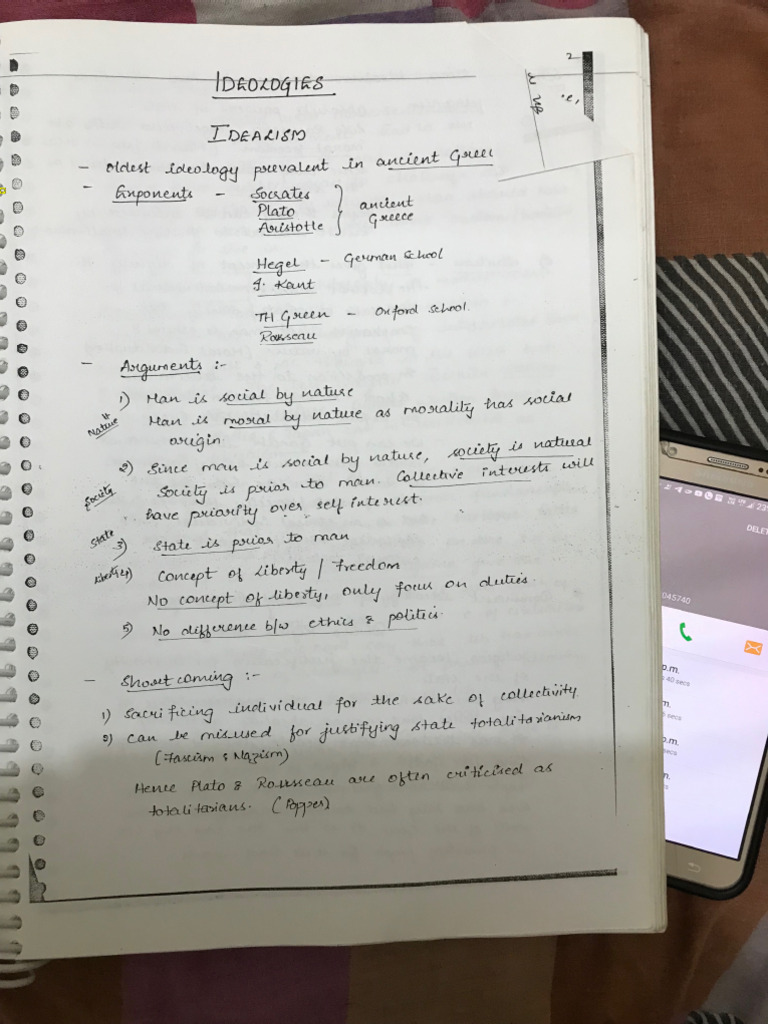 2
IDEOLOGIES
IDEALISM
- Oldest ideology prevalent in ancient Greec
- Exponents - Socrates
Plato
Aristotle
ancient
Greece
Hegel - German School
I. Kant
TH Green - Oxford School.
Rousseau
- Arguments :-
1) Man is social by nature
Nature
Man is moral by nature as morality has social
origin.
2) Since man is social by nature, society is natural
Society
Society is prior to man. Collective interests will
have priority over self interest.
State
3) State is prior to man
Liberty
4) Concept of Liberty / Freedom
No concept of liberty, only focus on duties
5) No difference b/w ethics & politics.
- Shortcoming :-
1) Sacrificing individual for the sake of collectivity
2) Can be misused for justifying state totalitarianism
(Fascism & Nazism)
Hence Plato & Rousseau are often criticised as
totalitarians. (Popper)
DELET
045740
p.m.
40 secs
m.
secs
p.m.
secs
n.